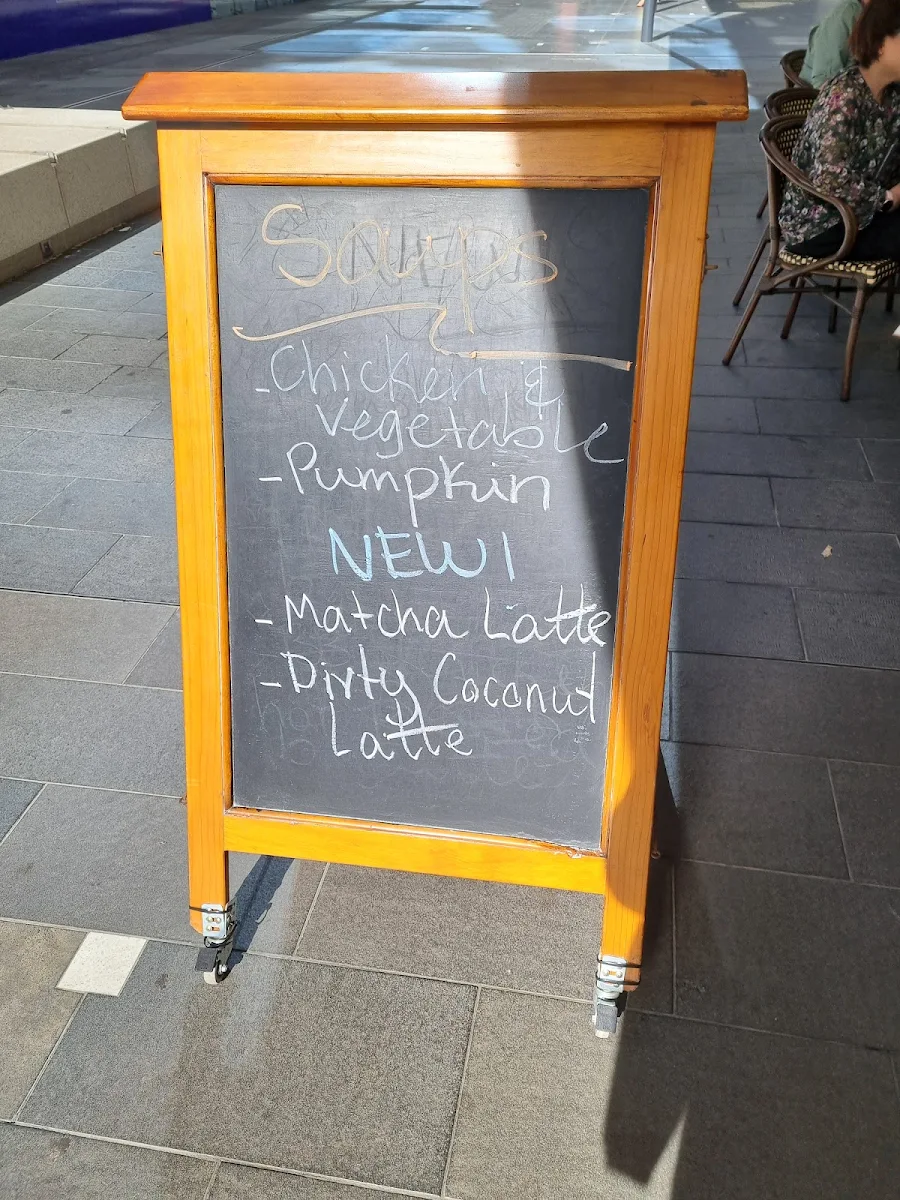 Soups
- Chicken &
Vegetable
- Pumpkin
NEW!
- Matcha Latte
- Dirty Coconut
Latte